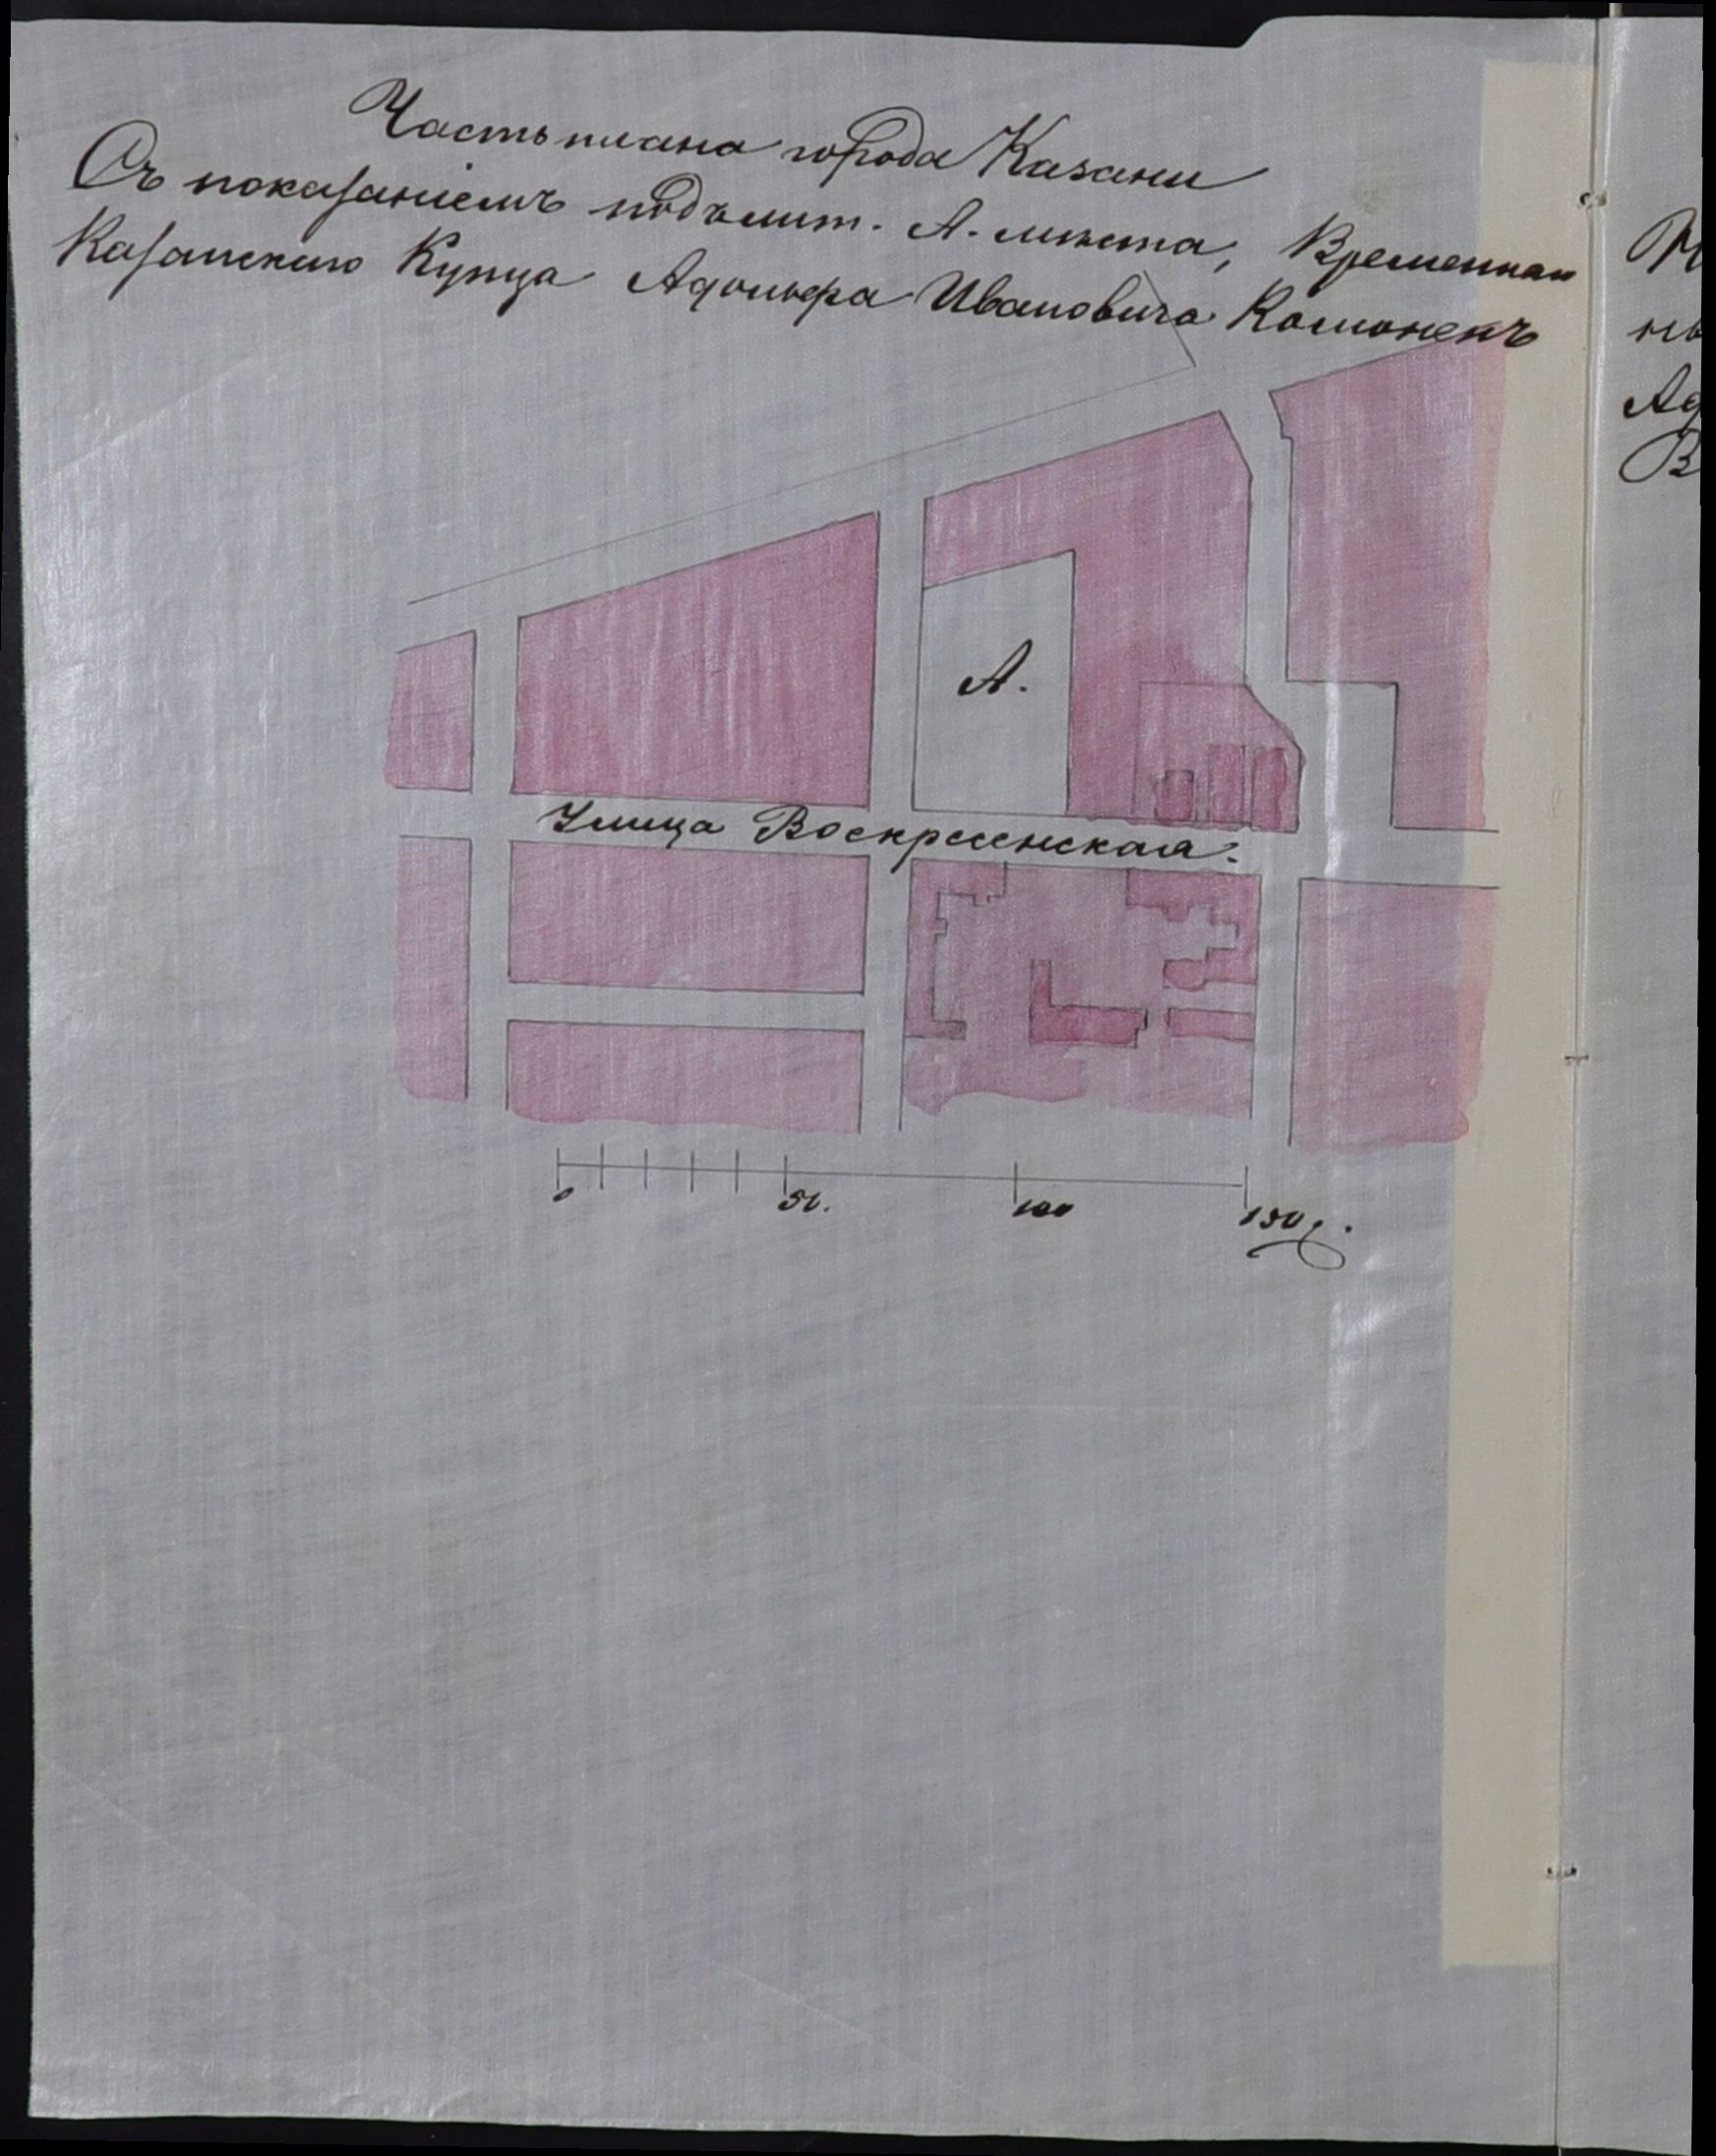 Часть плана города Казани
Съ показаніемъ подъ лит. А. мѣста, Временнаго
Казанскаго Купца Адольфа Ивановича Комоненъ
А.
Улица Воскресенская.
0 50. 100 150 с.